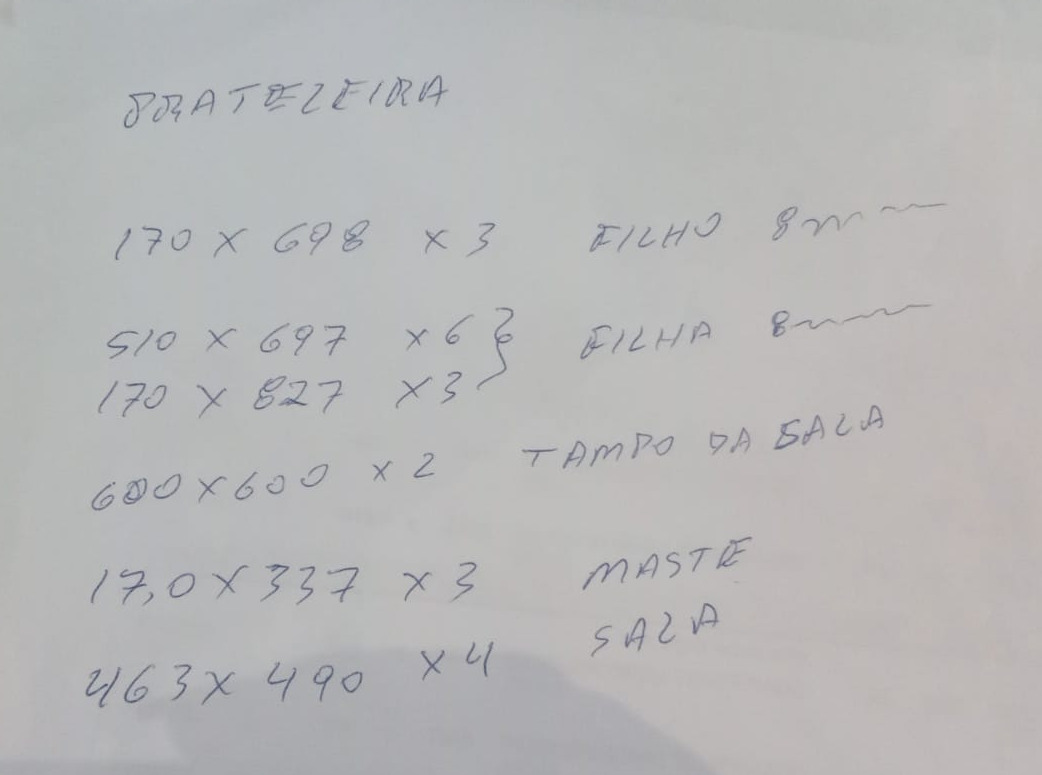 PRATELEIRA
170 X 698 X 3 FILHO 8mm
510 X 697 X 6 } FILHA 8mm
170 X 827 X 3
600 X 600 X 2 TAMPO DA SALA
17,0 X 337 X 3 MASTE
463 X 490 X 4 SALA